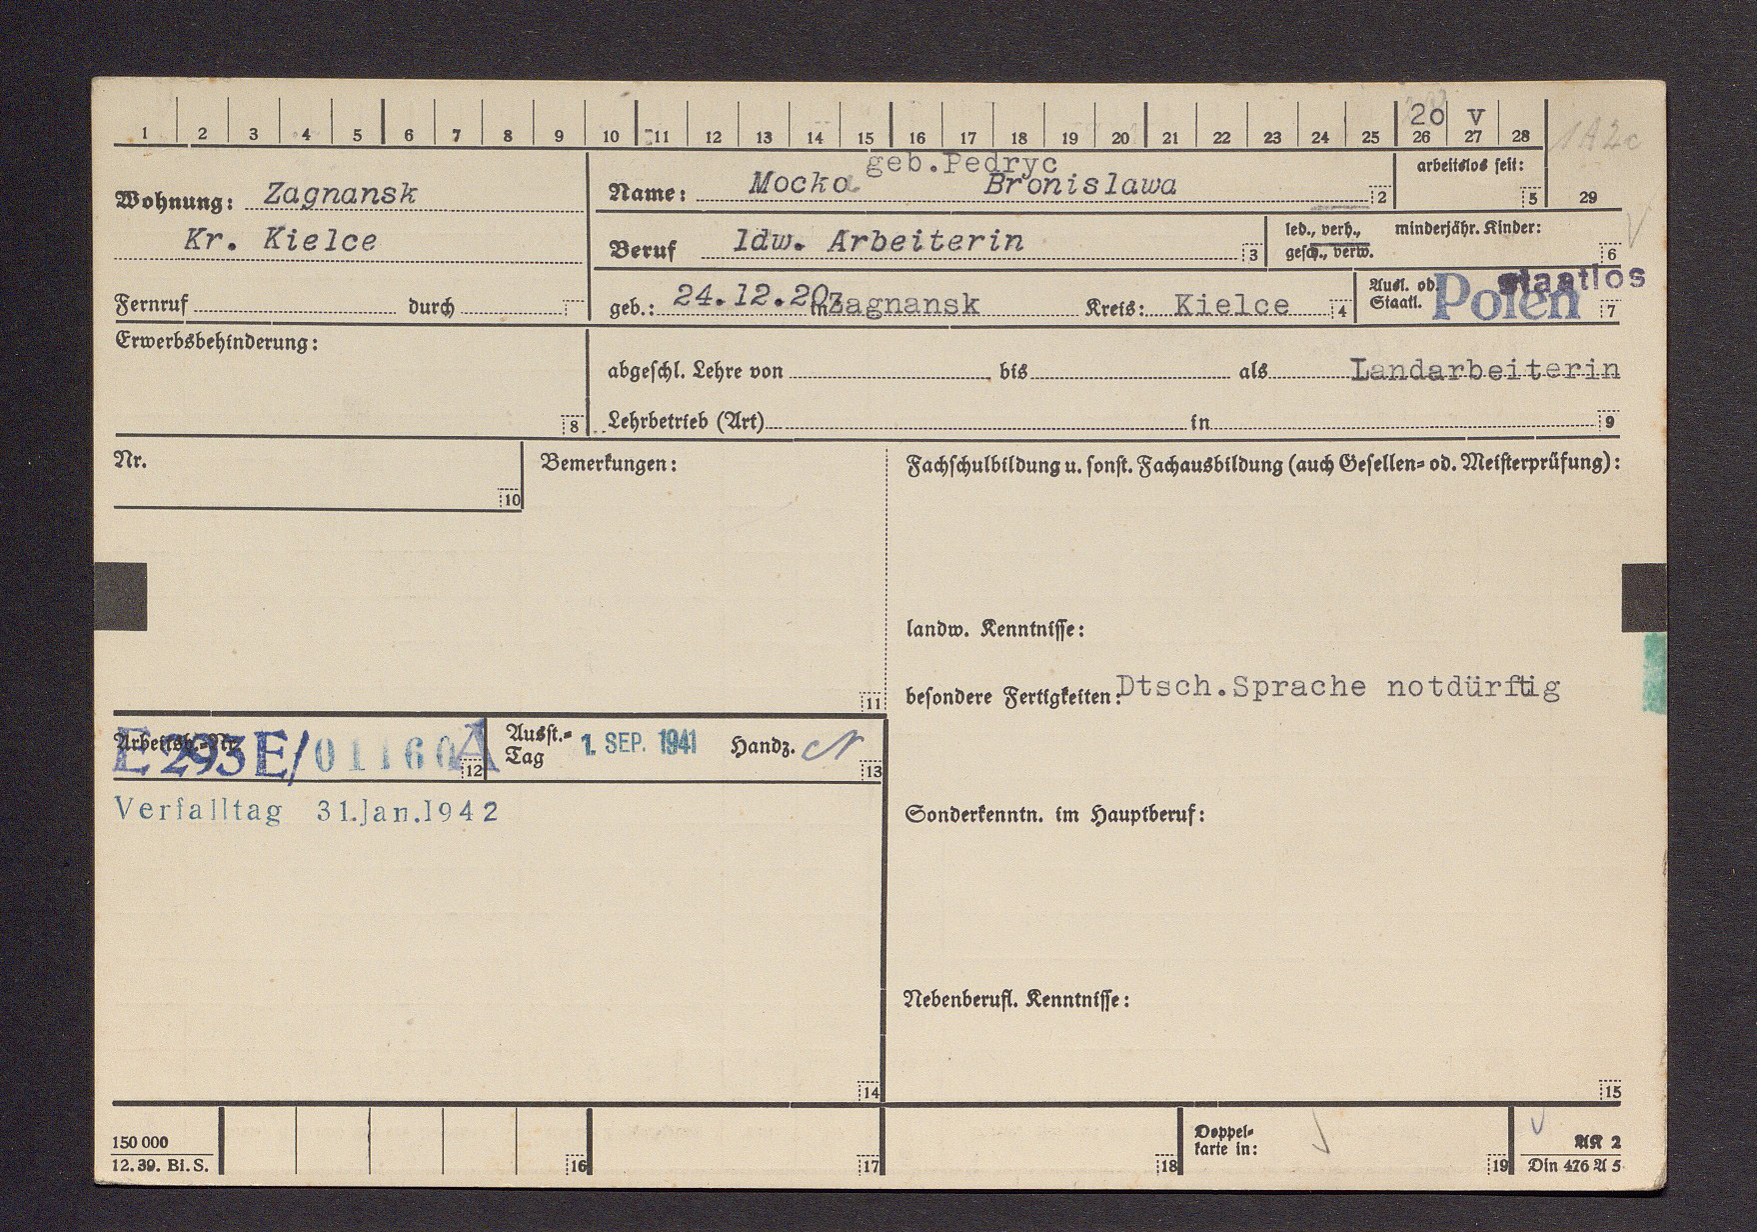 20 V
1 2 3 4 5 6 7 8 9 10 11 12 13 14 15 16 17 18 19 20 21 22 23 24 25 26 27 28
1A2c
29
Wohnung: Zagnansk
Kr. Kielce
Fernruf durch
geb.Pedryc
Name: Mocka Bronislawa 2
arbeitslos seit:
5
Beruf ldw. Arbeiterin 3
led., verh., minderjähr. Kinder:
gesch., verw. 6
geb.: 24.12.20 in Zagnansk Kreis: Kielce 4
Ausl. od. staatlos
Staatl. Polen 7
Erwerbsbehinderung:
8
abgeschl. Lehre von bis als Landarbeiterin
Lehrbetrieb (Art) in 9
Nr.
10
Bemerkungen:
11
Fachschulbildung u. sonst. Fachausbildung (auch Gesellen- od. Meisterprüfung):
landw. Kenntnisse:
besondere Fertigkeiten: Dtsch.Sprache notdürftig
Arbeitsb.-Nr.
E 293 E/01160 A 12
Ausst.-
Tag 1. SEP. 1941 Handz. 13
Verfalltag 31.Jan.1942
14
Sonderkenntn. im Hauptberuf:
Nebenberufl. Kenntnisse:
15
150 000
12. 39. Bi. S.
16
17
18
Doppel-
karte in:
19
AK 2
Din 476 A 5